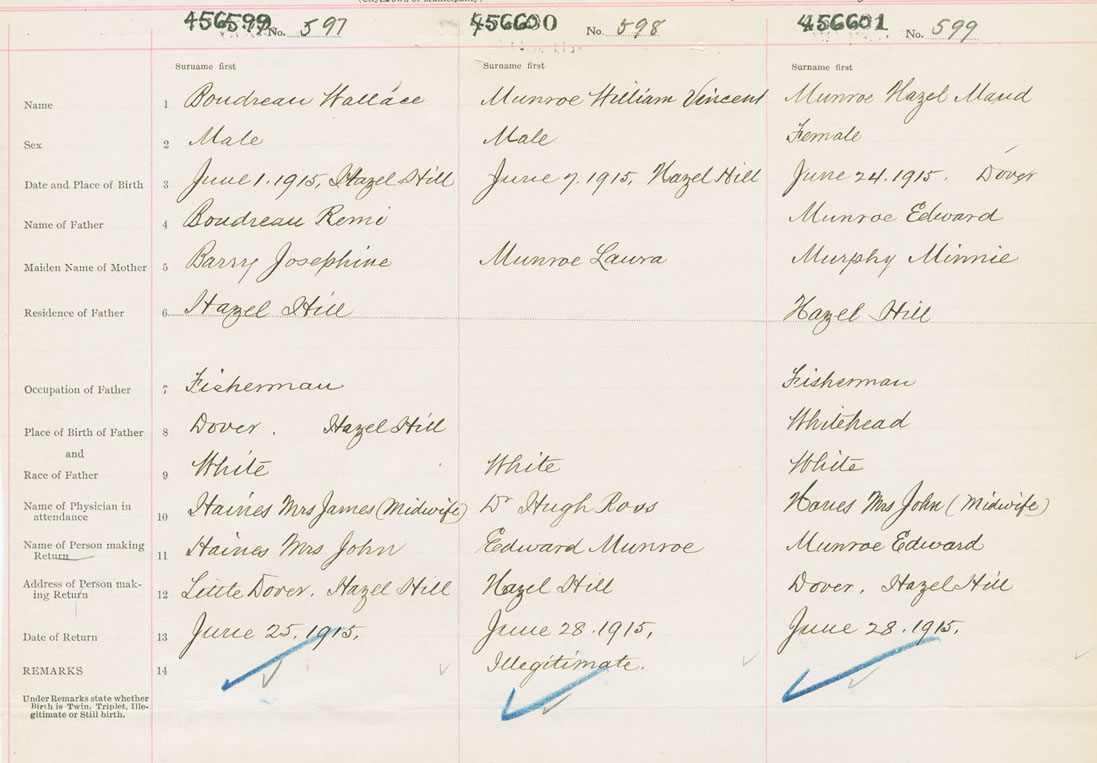 456599 No. 597 456600 No. 598 456601 No. 599
Surname first Surname first Surname first
Name 1 Boudreau Wallace Munroe William Vincent Munroe Hazel Maud
Sex 2 Male Male Female
Date and Place of Birth 3 June 1. 1915, Hazel Hill June 7. 1915, Hazel Hill June 24. 1915. Dover
Name of Father 4 Boudreau Remi Munroe Edward
Maiden Name of Mother 5 Barry Josephine Munroe Laura Murphy Minnie
Residence of Father 6 Hazel Hill Hazel Hill
Occupation of Father 7 Fisherman Fisherman
Place of Birth of Father 8 Dover. Hazel Hill Whitehead
and
Race of Father 9 White White White
Name of Physician in
attendance 10 Haines Mrs James (Midwife) Dr Hugh Ross Hanes Mrs John (Midwife)
Name of Person making
Return 11 Haines Mrs John Edward Munroe Munroe Edward
Address of Person mak-
ing Return 12 Little Dover. Hazel Hill Hazel Hill Dover. Hazel Hill
Date of Return 13 June 25. 1915. June 28. 1915. June 28. 1915.
REMARKS 14 Illegitimate.
Under Remarks state whether
Birth is Twin, Triplet, Ille-
gitimate or Still birth.